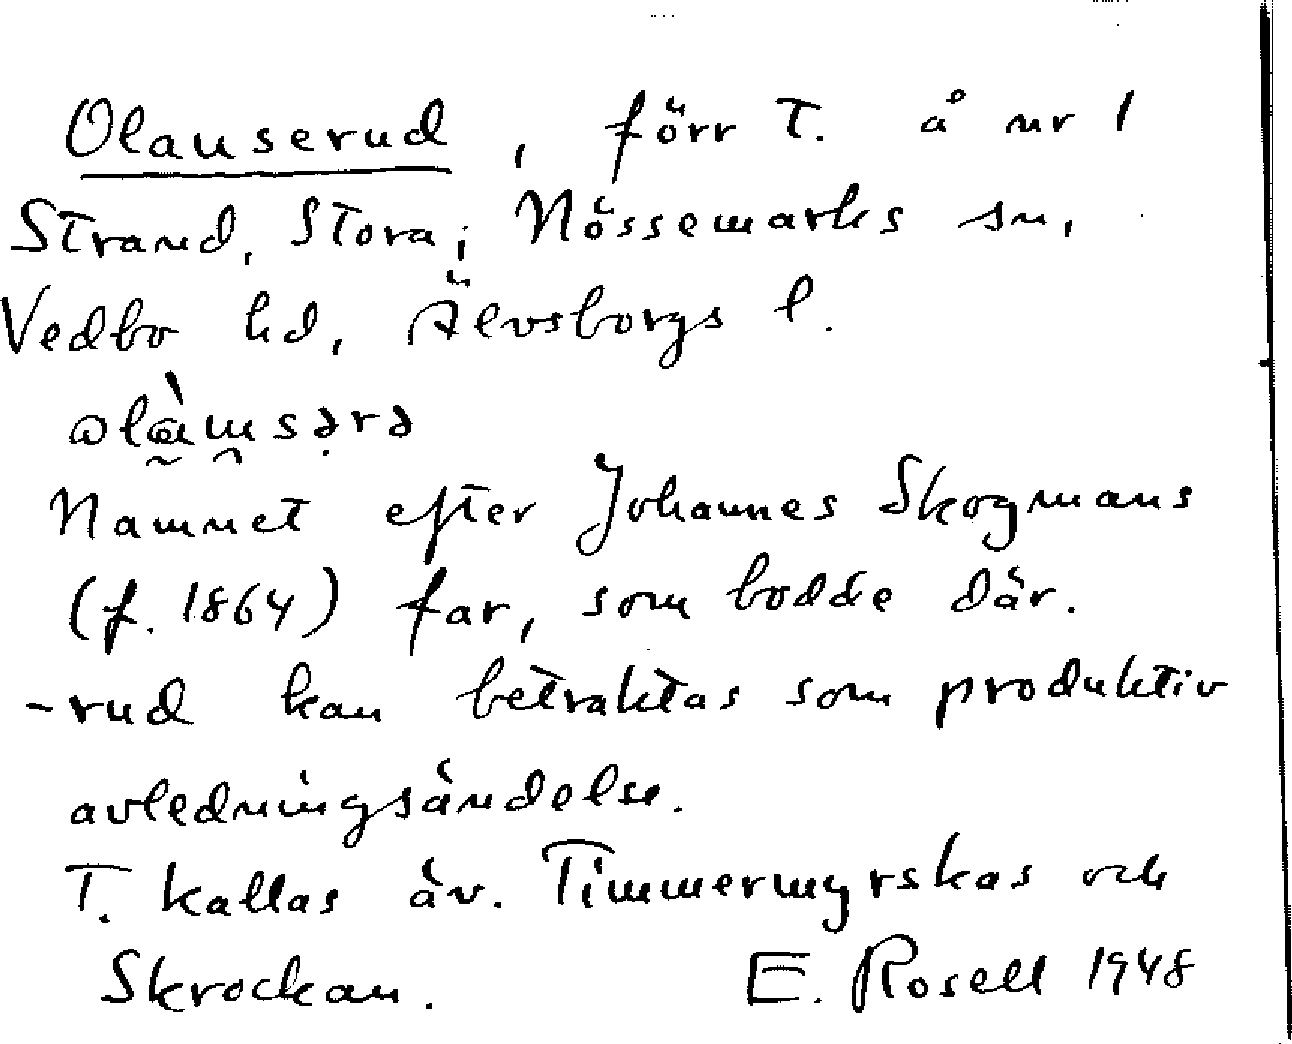 Olauserud, förr T. å nr 1
Strand, Stora, Nössemarks sn,
Vedbo hd, Älvsborgs l.
Namnet efter Johannes Skogmans
(f. 1864) far, som bodde där.
-rud kan betraktas som produktiv
avledningsändelse.
T. kallas äv. Timmermyrskas och
Skrockan. E. Rosell 1948